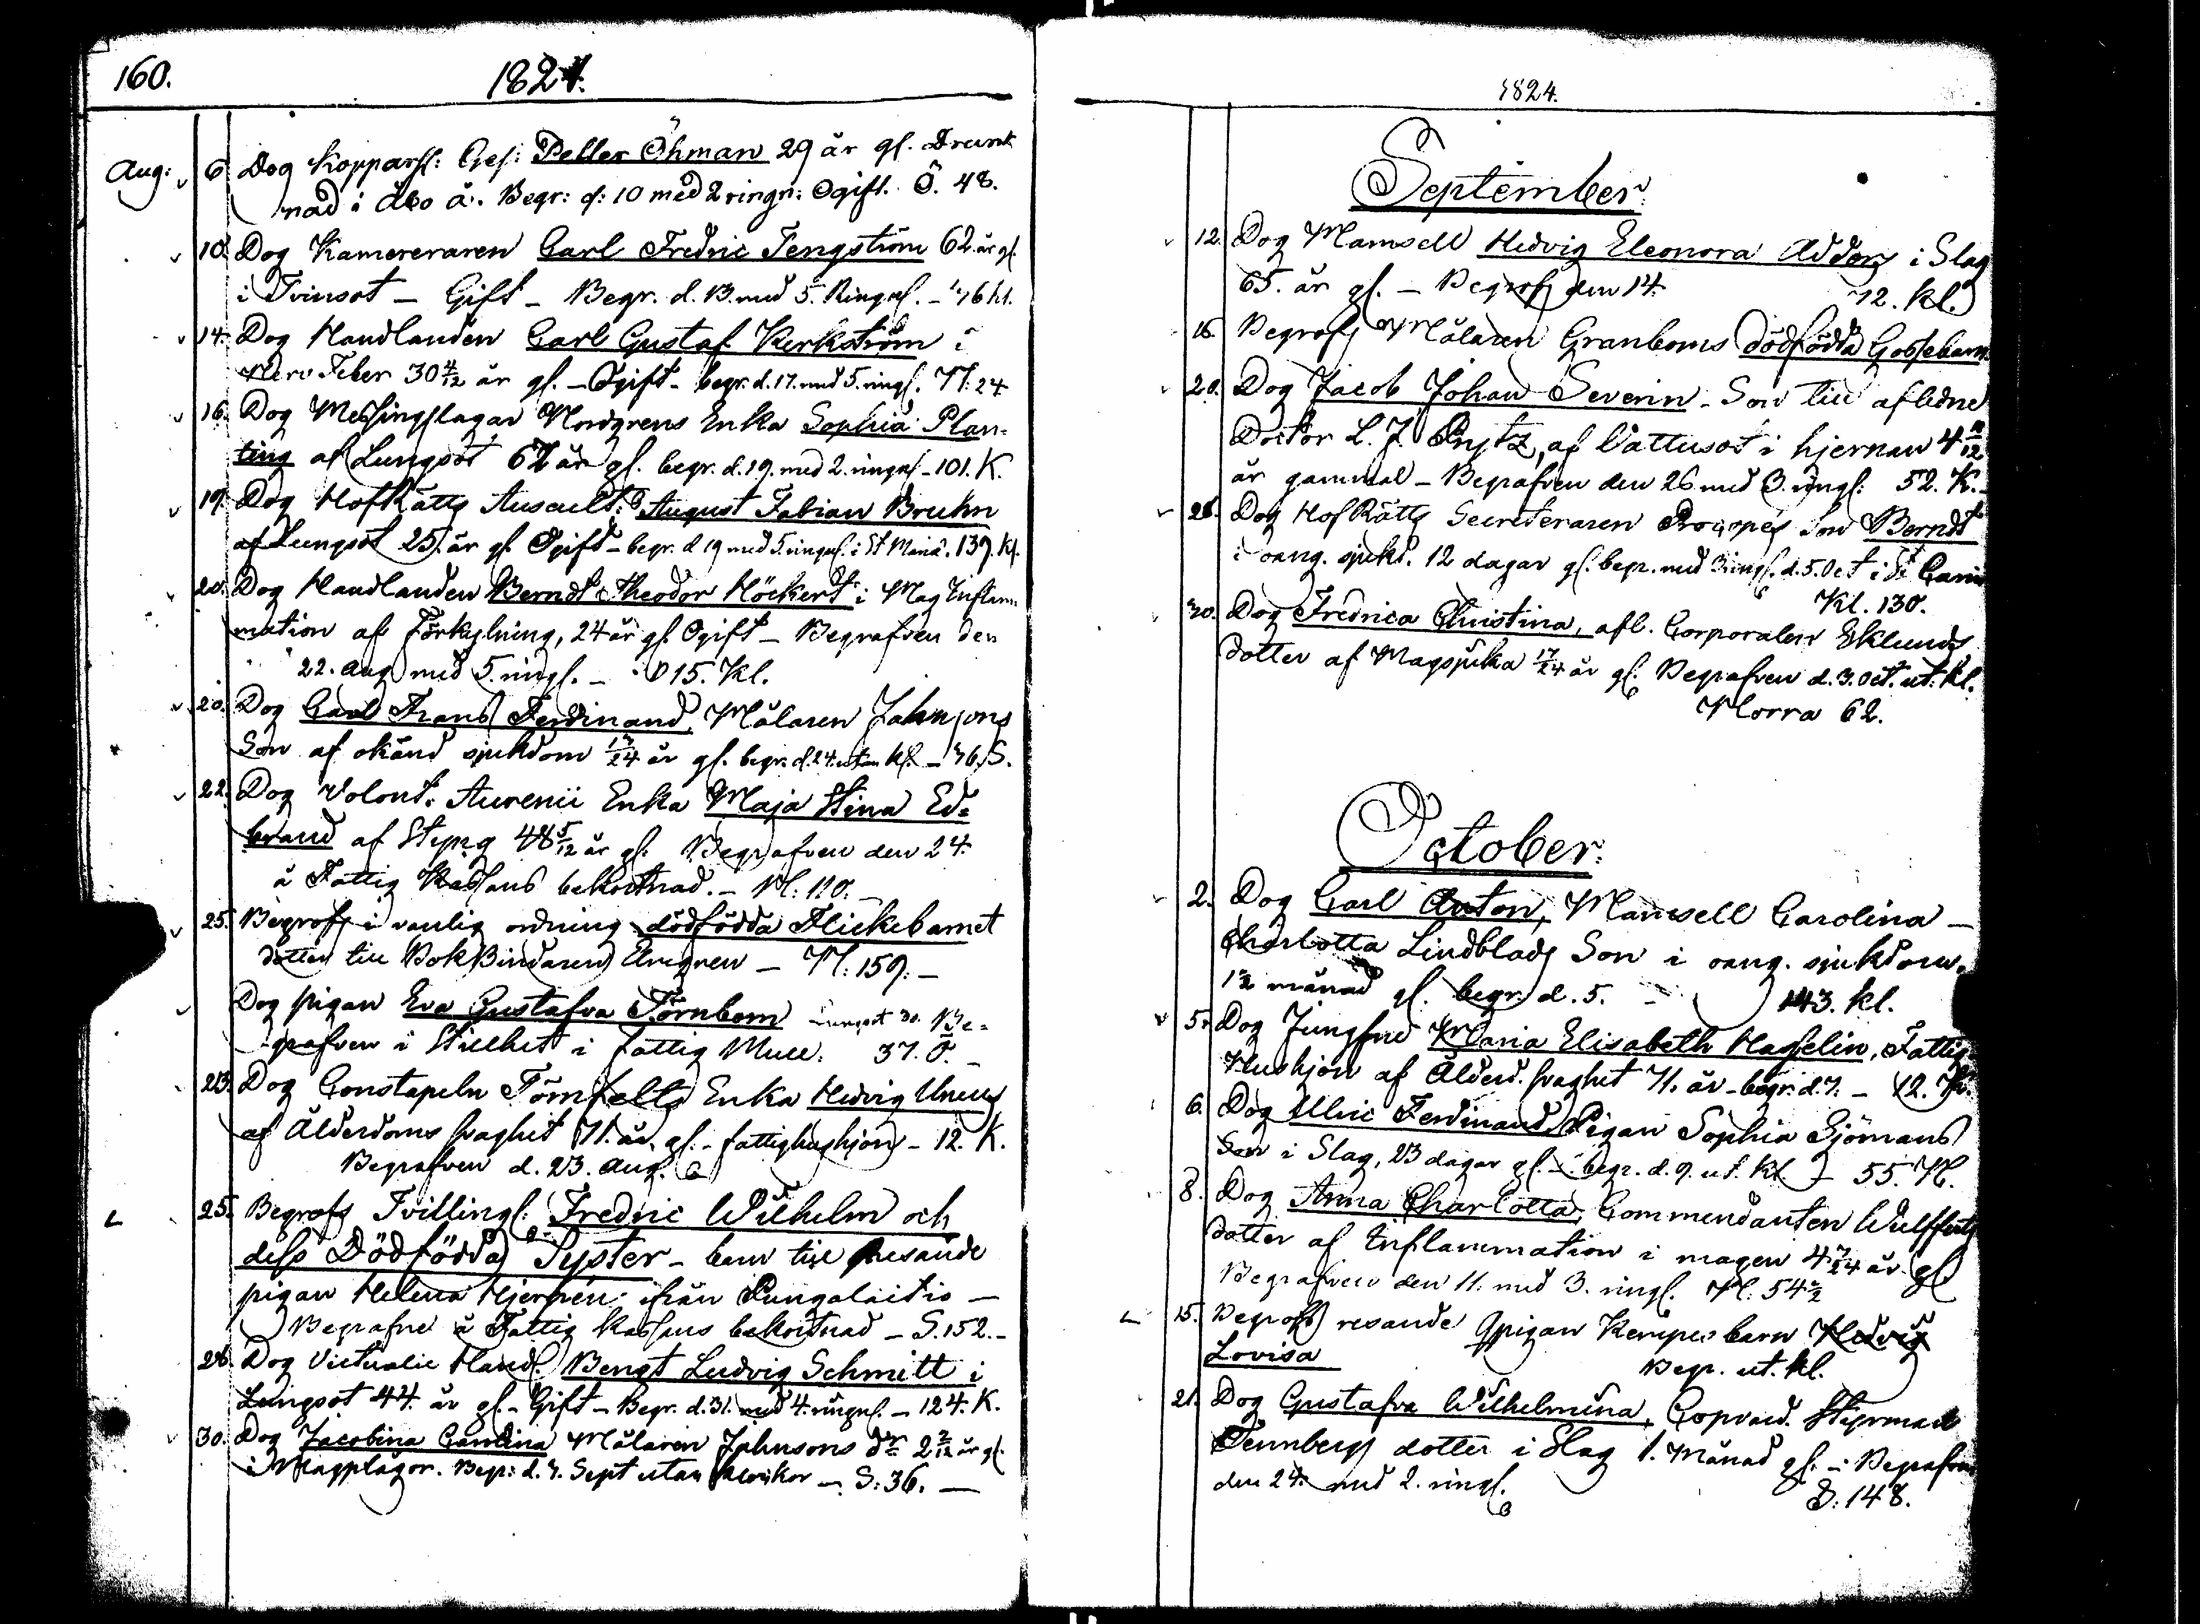 160. 1824.
Aug: 6 Dog Kopparsl: Ges: Petter Öhman 29 år gl. Drunk
nad i Åbo å. Begr: d: 10 med 2 ringn: Ogift. Ö. 48.
10. Dog Kamereraren Carl Fredric Tengström 62 år gl.
i Tvinsot – Gift – Begr. d. 13. med 5. Ringnl. – 46 kl.
14. Dog Handlanden Carl Gustaf Kerkström i
Nerv Feber 30 4/12 år gl. – Ogift – begr. d. 17. med 5. ringl. Kl: 24
16. Dog Messingslagar Nordgrens Enka Sophia Plan-
ting af Lungsot 67 år gl. begr. d. 19. med 2. ringnl – 101. K.
17. Dog HofRätts Auscult: August Fabian Bruhn
af Lungsot 25. år gl. Ogift – begr. d 19 med 5. ringnl. i St Mariæ. 139. Kl.
20. Dog Handlanden Berndt Theodor Höckert i Mag Inflam
mation af Förkylning, 24 år gl. Ogift – Begrafven den
22. Aug med 5. ringl. – 15. Kl.
20. Dog Carl Frans Ferdinand, Målaren Jahnsons
Son af okänd sjukdom 13/24 år gl. begr. d. 24. utan kl. – 36. S.
22. Dog Volont. Aurenii Enka Maja Stina Ed=
brand af Styng 48 5/12 år gl. Begrafven den 24.
å Fattig Kassans bekostnad. – Kl: 110. –
25. Begrofs i vanlig ordning dödfödda Flickebarnet
dotter till BokBindaren Elvegren – Kl: 159. –
Dog pigan Eva Gustafva Törnbom Lungsot 30. Be=
grafven i Stillhet i fattig Mull. 37. Ö. –
23. Dog Constapeln Törnfelts Enka Hedvig Uneus
af Ålderdoms svaghet 71. år gl. – fattighushjon – 12. K.
Begrafven d. 23. Aug.
25. Begrofs Tvillingl: Fredric Wilhelm och
dess Dödfödda Syster – barn till resande
pigan Helena Hjerpén från Pungalaitio –
Begrafne å Fattig kassans bekostnad – S. 152. –
28. Dog Victualie Handl. Bengt Ludvig Schmitt i
Lungsot 44. år gl. – Gift – Begr. d. 31. med 4. ringnl. – 124. K.
30. Dog Jacobina Carolina Målaren Jahnsons dr 2 2/12 år gl.
i Magplågor. Begr: d. 3. Sept utan klockor – S: 36. –
1824.
September.
12. Dog Mamsell Hedvig Eleonora Addors i Slag
65. år gl. – Begrofs den 14. 12. Kl.
16. Begrofs Målaren Granboms dödfödda Gossebarn.
20. Dog Jacob Johan Severin – Son till aflidne
Doctor L. J. Prytz, af Vattusot i hjernan 4 11/12
år gammal – Begrafven den 26 med 3. ringl: 52. K. –
28. Dog HofRätts Secreteraren Procopés Son Berndt
i oang. sjukd. 12 dagar gl. begr. med 3 ringl. d. 5. Oct i St
Kl. 130.
30. Dog Fredrica Christina, afl. Corporalen Eklunds
dotter af Magsjuka 17/24 år gl. Begrafven d. 3. Oct. ut. kl.
Norra 62.
October.
2. Dog Carl Anton, Mamsell Carolina –
Charlotta Lindblads Son i oang. sjukdom.
1 1/2 månad gl. begr. d. 5. – 143. kl.
5. Dog Jungfru Maria Elisabeth Hasselin, Fattig
Hushjon af Ålderd. svaghet 71. år – begr. d. 7. – 12. Kl.
6. Dog Ulric Ferdinand, Pigan Sophia Sjömans
Son i Slag, 23 dagar gl. – begr. d. 9. ut. kl. – 55. Kl.
8. Dog Anna Charlotta, Commendanten Wulfferts
dotter af Inflammation i magen 4 7/24 år gl
Begrafven den 11. med 3. ringl. Kl: 54 1/2
15. Begrofs resande pigan Kempes barn Hedvig
Lovisa Begr. ut. kl.
21. Dog Gustafva Wilhelmina, Copvard. Styrman
Tennbergs dotter i Slag 1. Månad gl. – Begrafven
den 24. med 2. ringl. S: 148.